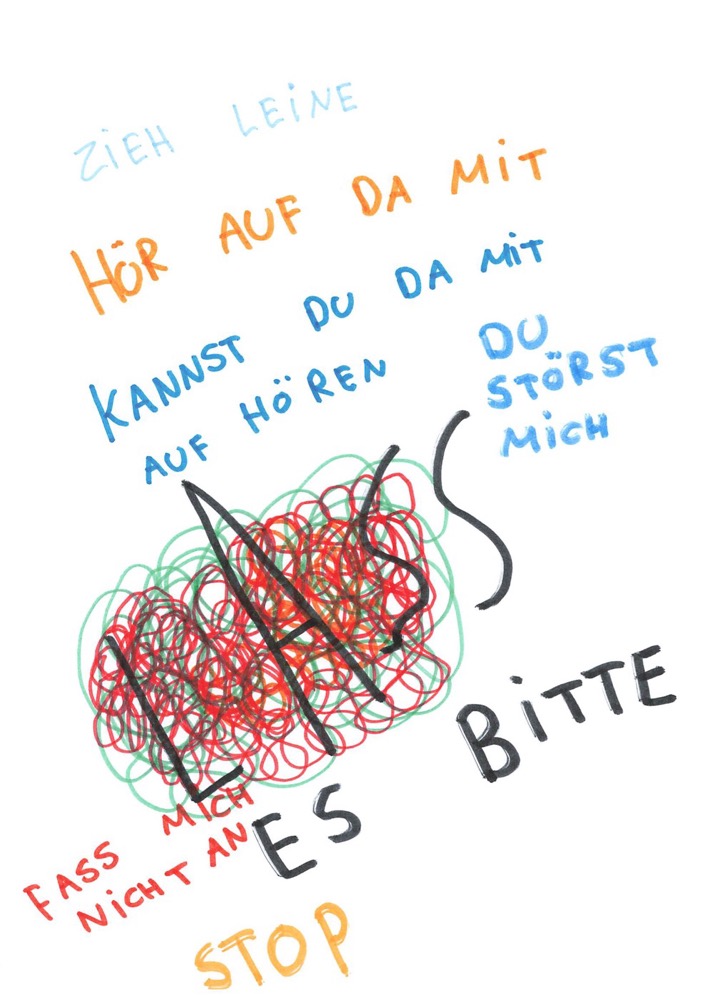 ZiEH LEiNE
HÖR AUF DA MiT
KANNST DU DA MiT
AUF HÖREN
DU
STÖRST
MiCH
LASS
ES BiTTE
FASS MiCH
NiCHT AN
STOP